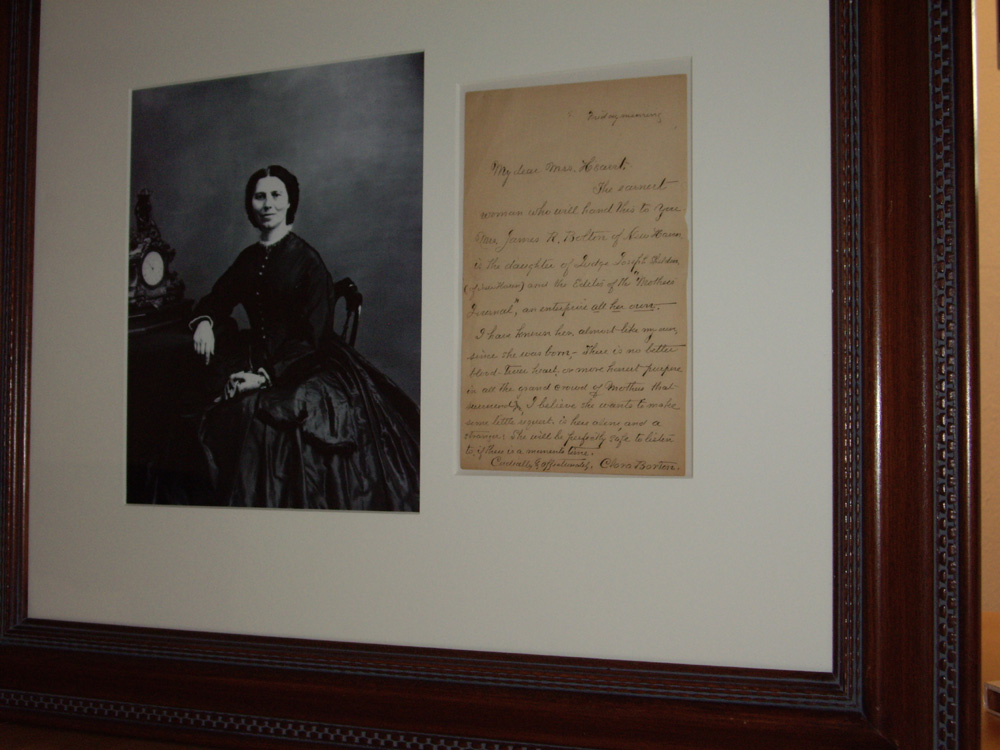 Friday morning
My dear Mrs.
The earnest
woman who will hand this to you
Mrs. James R. Bolton of New Haven
is the daughter of Judge Joseph Sheldon
(of New Haven) and the Editor of the "Mothers
Journal", an enterprise all her own.
I have known her almost like my own
since she was born, - There is no better
blood truer heart, or more honest purpose
in all the grand crowd of Mothers that
I believe she wants to make
some little request in her own, and a
she will be perfectly safe to listen
to, if there is a moments time.
Cordially & affectionately, Clara Barton.